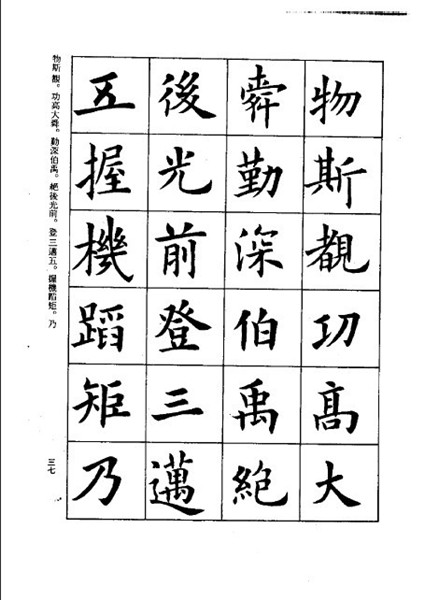 物斯覩功髙大
舜勤深伯禹絶
後光前登三邁
五握機蹈矩乃
物斯覩。功高大舜。勤深伯禹。絕後光前。登三邁五。握機蹈矩。乃
三七